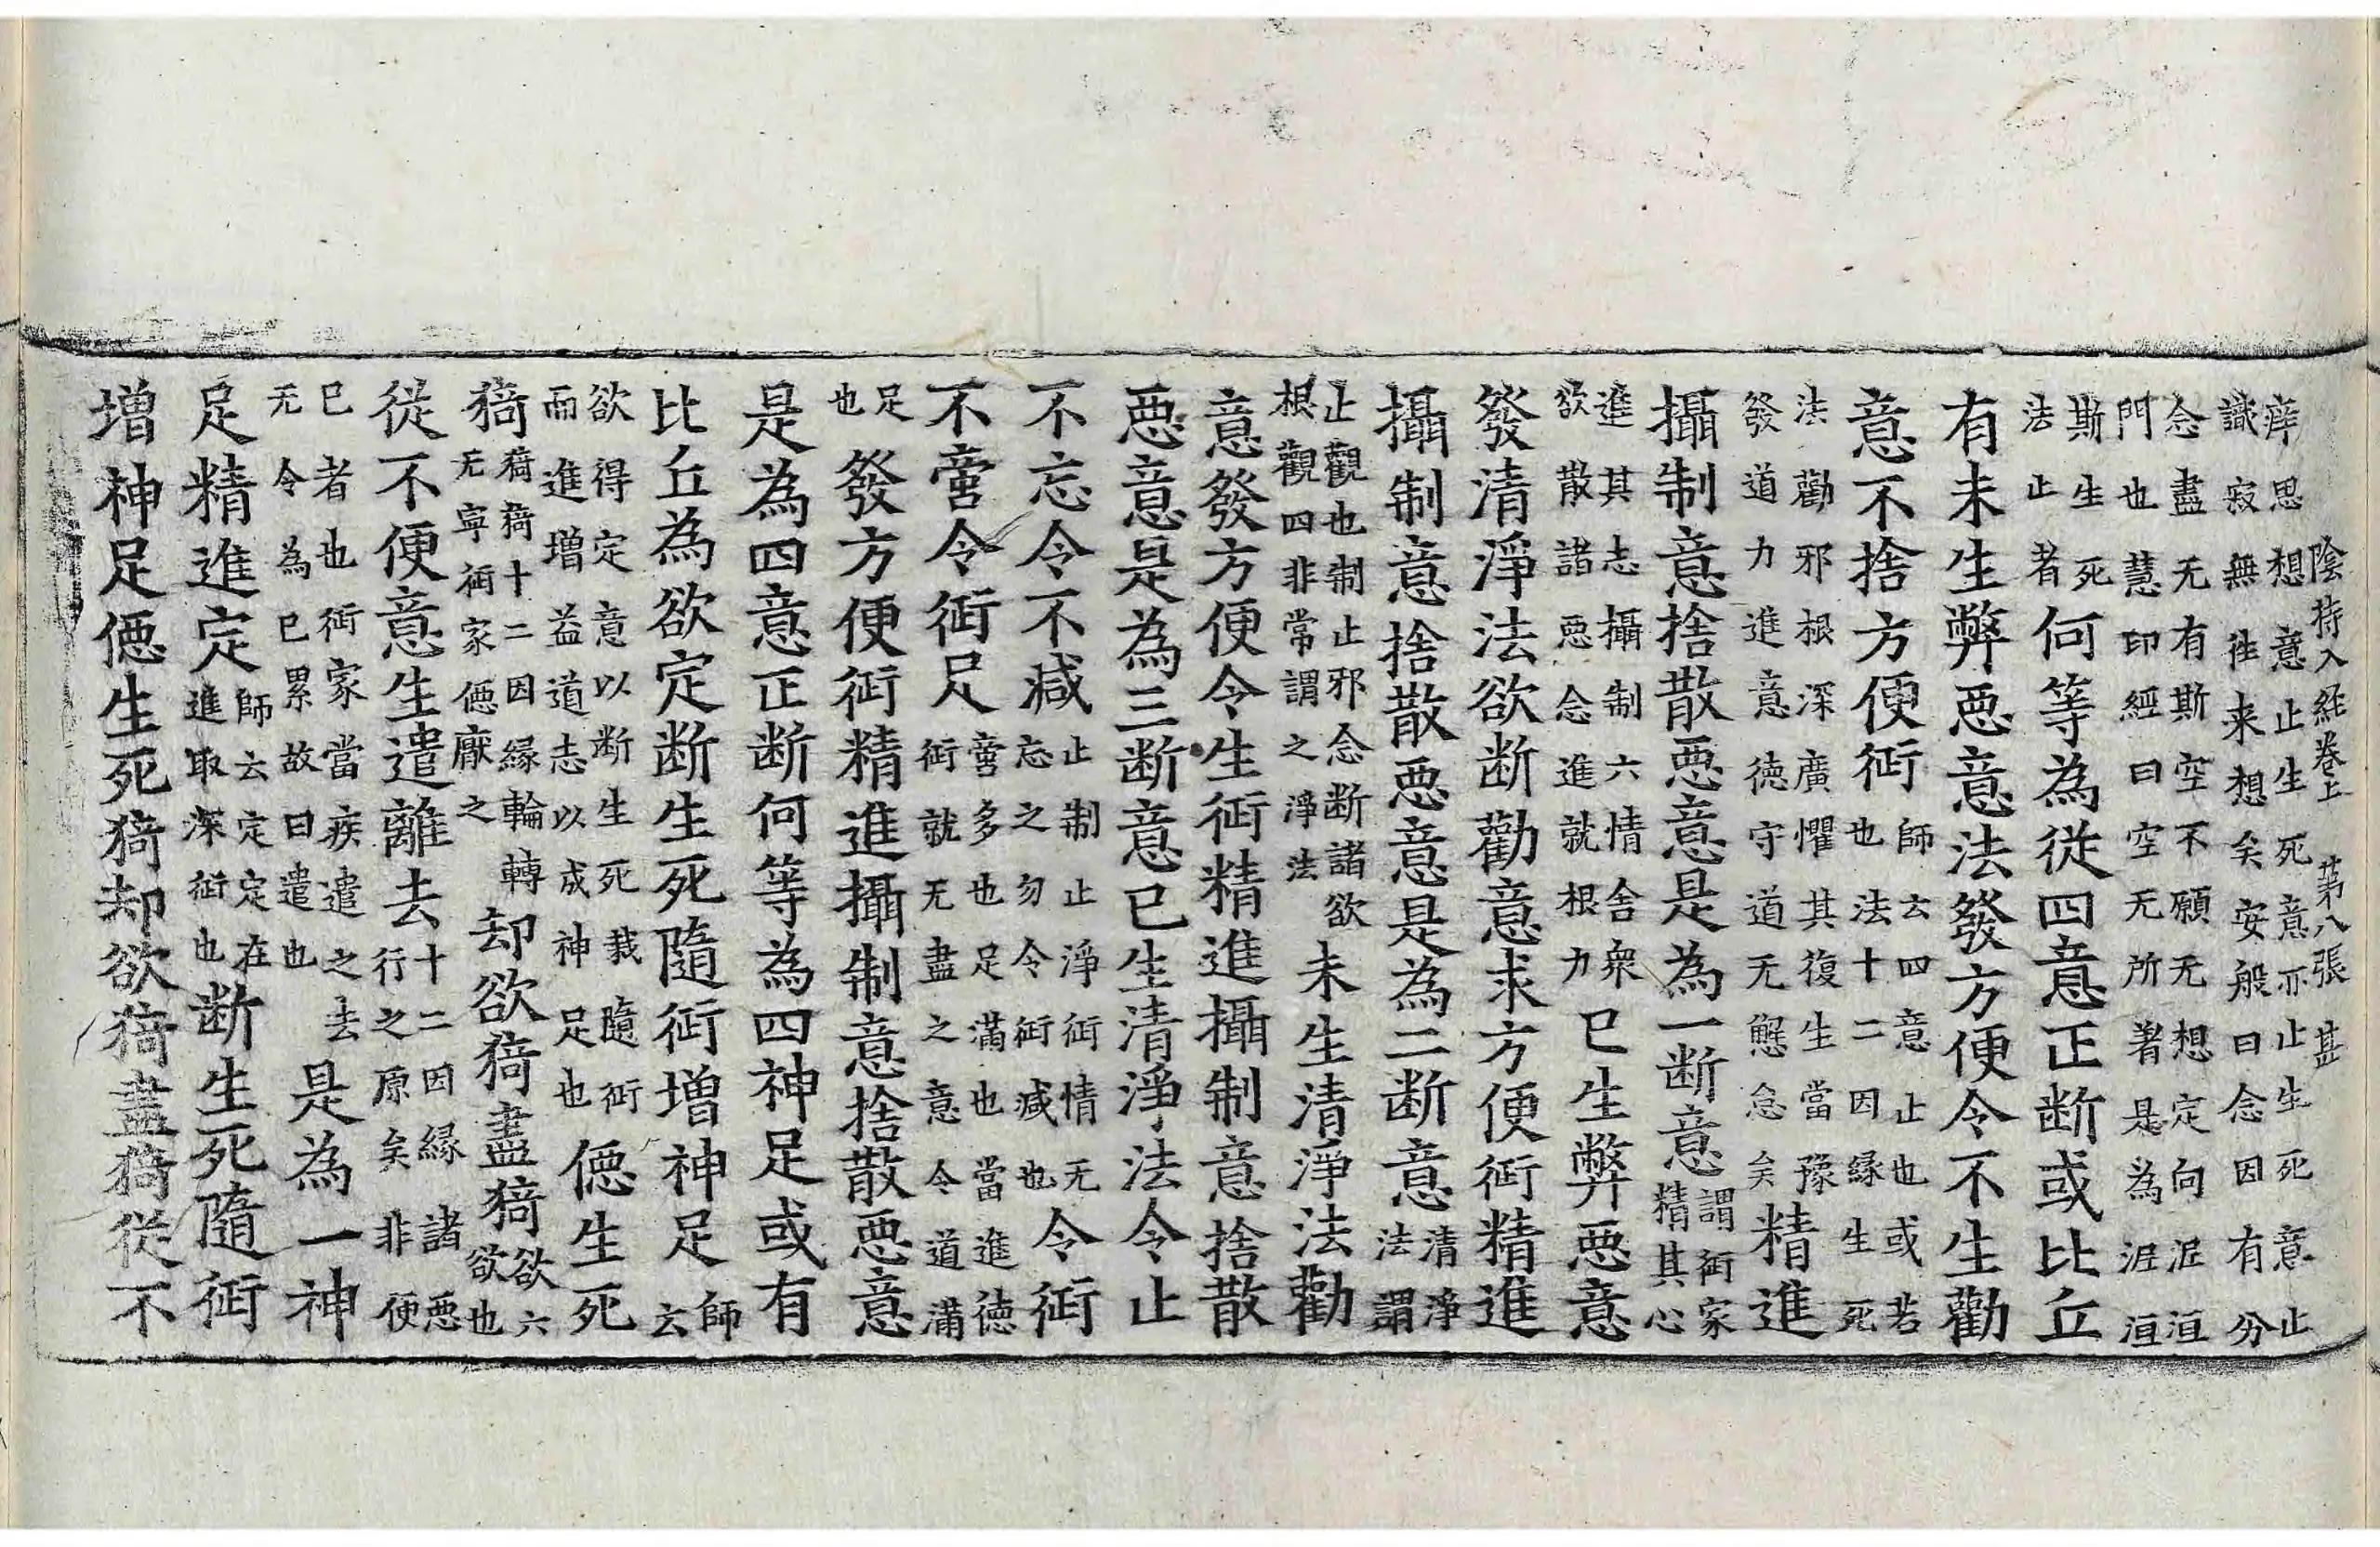 陰持入経卷上　第八張　甚
痒思想意止生死意亦止生死意止
識寂無往来想矣安般曰念因有分
念盡无有斯空不願无想定向泥洹
門也慧印經曰空无所著是為泥洹
斯生死
法止者
何等為從四意正断或比丘
有未生弊惡意法發方便令不生勸
意不捨方便𧗪
師云四意止也或若
也法十二因緣生死
法勸邪根深廣懼其復生當豫
發道力進意德守道无懈怠矣
精進
攝制意捨散惡意是為一断意
謂𧗪家
精其心
進其志攝制六情舍衆
欲散諸惡念進就根力
已生弊惡意
發清淨法欲断勸意求方便𧗪精進
攝制意捨散惡意是為二断意
清淨
法謂
止觀也制止邪念断諸欲
根觀四非常謂之淨法
未生清淨法勸
意發方便令生𧗪精進攝制意捨散
惡意是為三断意已生清淨法令止
不忘令不減
止制止淨𧗪情无
忘之勿令𧗪減也
令𧗪
不啻令𧗪足
啻多也足滿也當進德
𧗪就无盡之意令道滿
足
也
發方便𧗪精進攝制意捨散惡意
是為四意正断何等為四神足或有
比丘為欲定断生死隨𧗪增神足
師
云
欲得定意以断生死栽隨𧗪
而進增益道志以成神足也
僫生死
猗
猗猗十二因緣輪轉
无寧𧗪家僫厭之
却欲猗盡猗
欲六
欲也
從不便意生遣離去
十二因緣諸惡
行之原矣非便
已者也𧗪家當疾遣之去
无令為已累故曰遣也
是為一神
足精進定
師云定定在
進取深𧗪也
断生死隨𧗪
增神足僫生死猗却欲猗盡猗從不